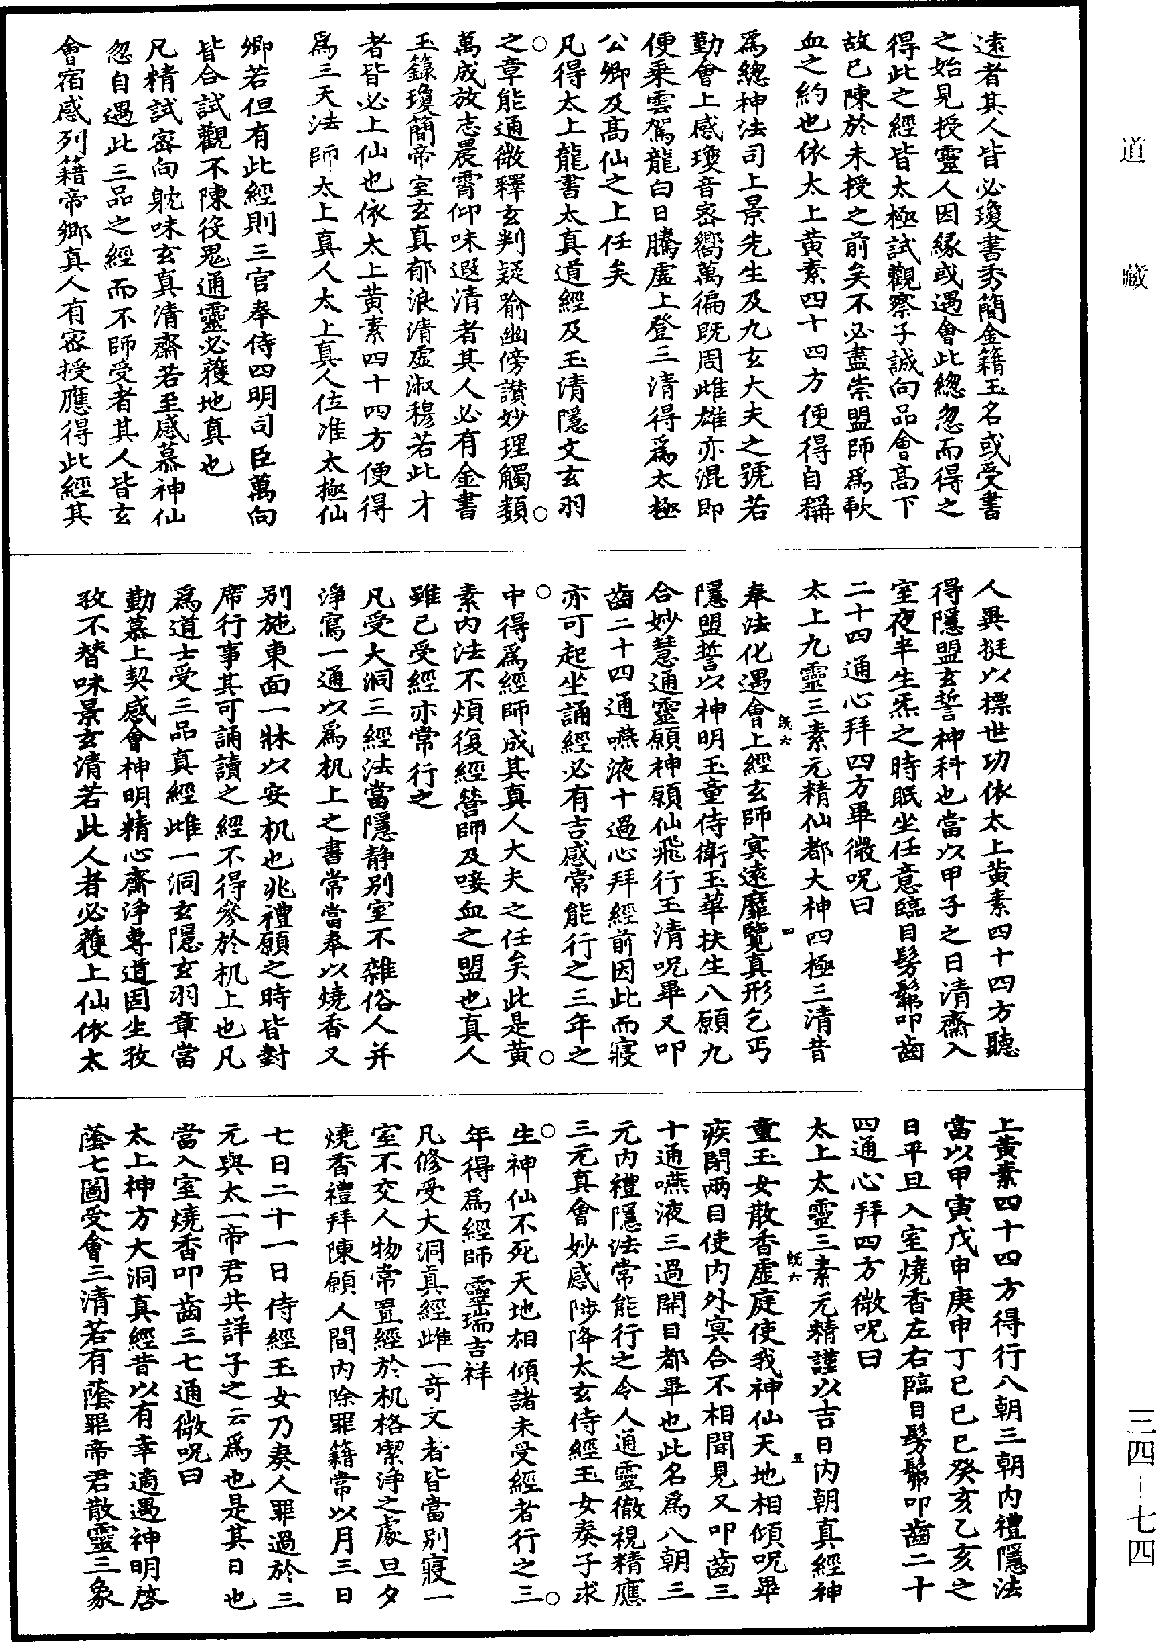 道藏
遠者其人皆必瓊書秀簡金籍玉名或受書
之始見授靈人因緣或遇會此緫忽而得之
得此之經皆太極試觀察子誠向品會高下
故已陳於未授之前矣不必盡崇盟師為軟
血之約也依太上黃素四十四方便得自稱
為總神法司上景先生及九玄大夫之號若
勤會上感瓊音密嚮萬徧既周雌雄亦混即
便乘雲駕龍白日騰虛上登三清得為太極
公卿及高仙之上任矣
凡得太上龍書太真道經及玉清隱文玄羽
之章能通微釋玄判疑喻幽傍讚妙理觸類
萬成放志晨霄仰味遐清者其人必有金書
玉籙瓊簡帝室玄真郁浪清虛淑穆若此才
者皆必上仙也依太上黃素四十四方便得
為三天法師太上真人太上真人位准太極仙
卿若但有此經則三官奉侍四明司臣萬向
皆合試觀不陳役鬼通靈必獲地真也
凡精試密向躭味玄真清齋若至感慕神仙
忽自遇此三品之經而不師受者其人皆玄
會宿感列籍帝鄉真人有密授應得此經其
人異挺以標世功依太上黃素四十四方聽
得隱盟玄誓神科也當以甲子之日清齋入
室夜半生炁之時眠坐任意臨目髣髴叩齒
二十四通心拜四方畢微呪曰
太上九靈三素元精仙都大神四極三清昔
奉法化遇會上經玄師寘遠靡覽真形乞丐
隱盟誓以神明玉童侍衛玉華扶生八願九
合妙慧通靈願神願仙飛行玉清呪畢又叩
齒二十四通嚥液十過心拜經前因此而寢
亦可起坐誦經必有吉感常能行之三年之
中得為經師成其真人大夫之任矣此是黃
素內法不煩復經營師及唼血之盟也真人
雖已受經亦常行之
凡受大洞三經法當隱靜別室不雜俗人并
淨寫一通以為机上之書常當奉以燒香又
別施東面一牀以安机也兆禮願之時皆對
席行事其可誦讀之經不得參於机上也凡
為道士受三品真經雌一洞玄隱玄羽章當
勤慕上契感會神明精心齋淨專道固坐孜
孜不替味景玄清若此人者必獲上仙依太
上黃素四十四方得行八朝三朝內禮隱法
當以甲寅戊申庚申丁巳己巳癸亥乙亥之
日平旦入室燒香左右臨目髣髴叩齒二十
四通心拜四方微呪曰
太上太靈三素元精謹以吉日內朝真經神
童玉女散香虛庭使我神仙天地相傾呪畢
疾閉兩目使內外寘合不相聞見又叩齒三
十通嚥液三過開目都畢也此名為八朝三
元內禮隱法常能行之令人通靈徹視精應
三元真會妙感陟降太玄侍經玉女奏子求
生神仙不死天地相傾諸未受經者行之三
年得為經師靈瑞吉祥
凡修受大洞真經雌一奇文者皆當別寢一
室不交人物常置經於机格潔淨之處旦夕
燒香禮拜陳願人間內除罪籍常以月三日
七日二十一日侍經玉女乃奏人罪過於三
元與太一帝君共詳子之云為也是其日也
當入室燒香叩齒三七通微呪曰
太上神方大洞真經昔以有幸適遇神明啓
蔭七圖受會三清若有蔭罪帝君散靈三象
既六
四
既六
五
三四-七四